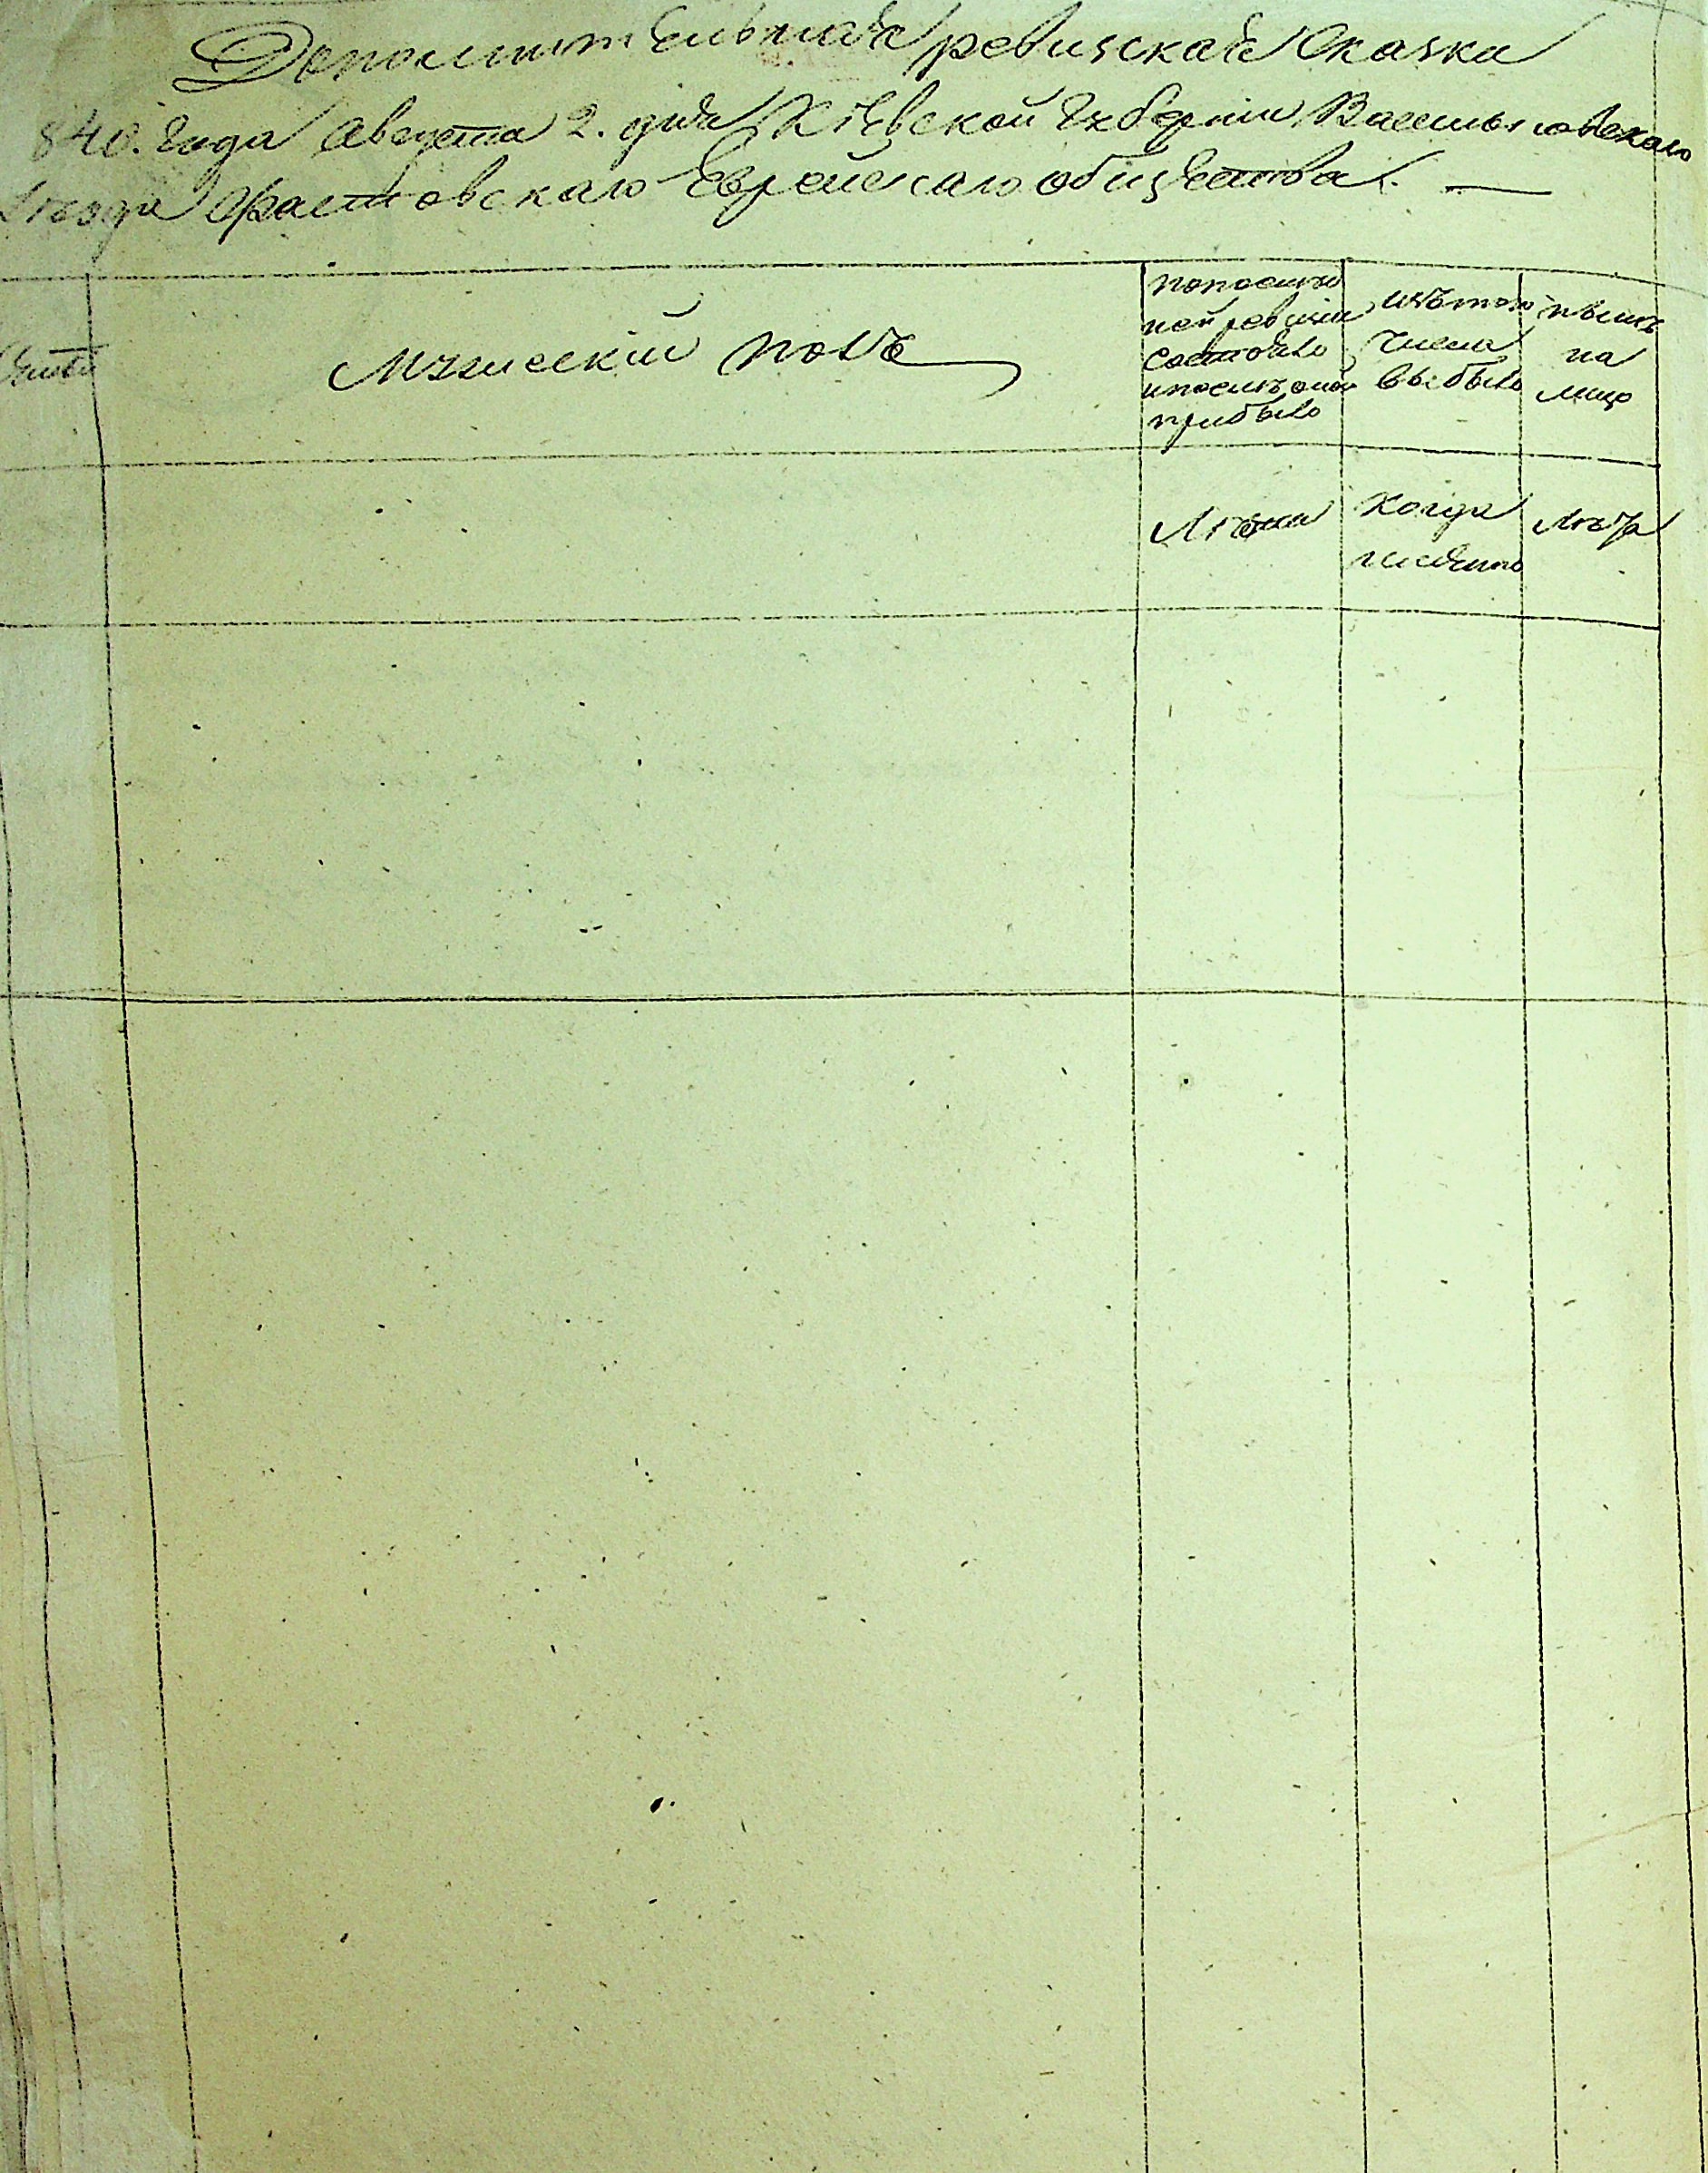 Дополнительная ревизская Сказка
840. Года Августа 2. дня Кіевской Губерніи Васильковскаго
Уѣзда Фастовскаго Еврейскаго общества. —
Мужескій полъ
по послѣд
ней ревизіи
состояло
и послѣ оной
прибыло
изъ того
числа
выбыло
нынѣ
на
лицо
Лѣта
Когда
именно
Лѣта